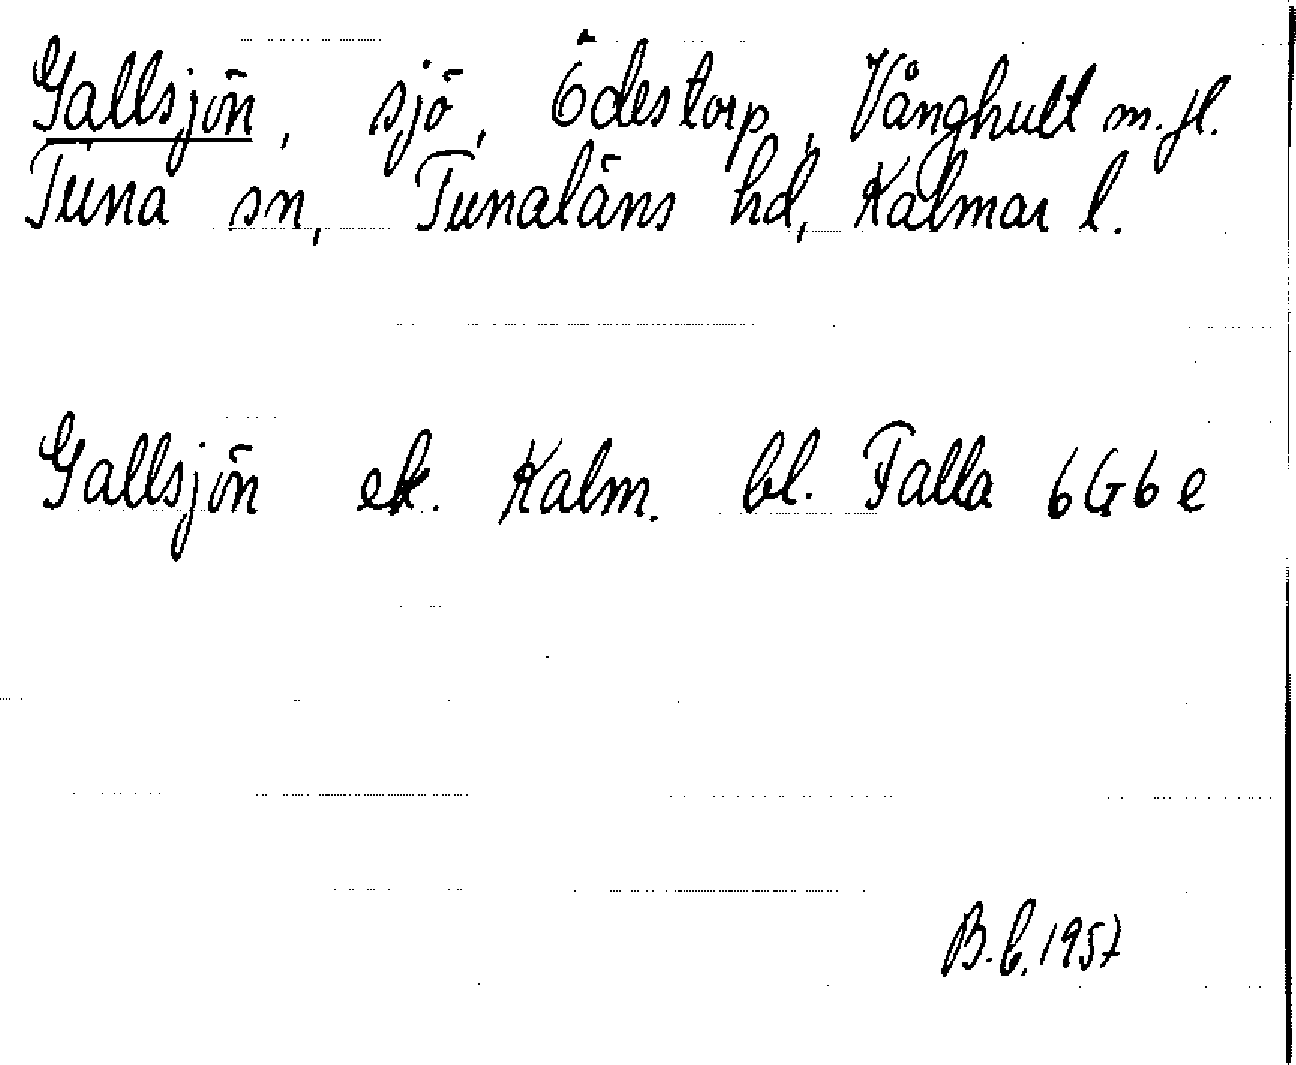 Gallsjön, sjö, Ödestorp, Vånghult m. fl.
Tuna sn, Tunaläns hd, Kalmar l.
Gallsjön ek. Kalm. bl. Falla 6G6e
B.b. 1957